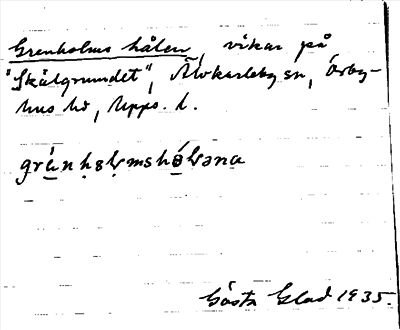 Grenholms hålen, vikar på
"Skålgrundet", Älvkarleby sn, Örby-
hus hd, Upps. l.
Gösta Glad 1935.